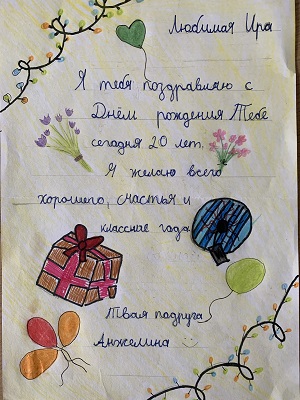 Любимая Ира
Я тебя поздравляю с
Днём рождения Тебе
сегодня 20 лет.
Я желаю всего
хорошего, счастья и
классние года
Твая подруга
Анжелина